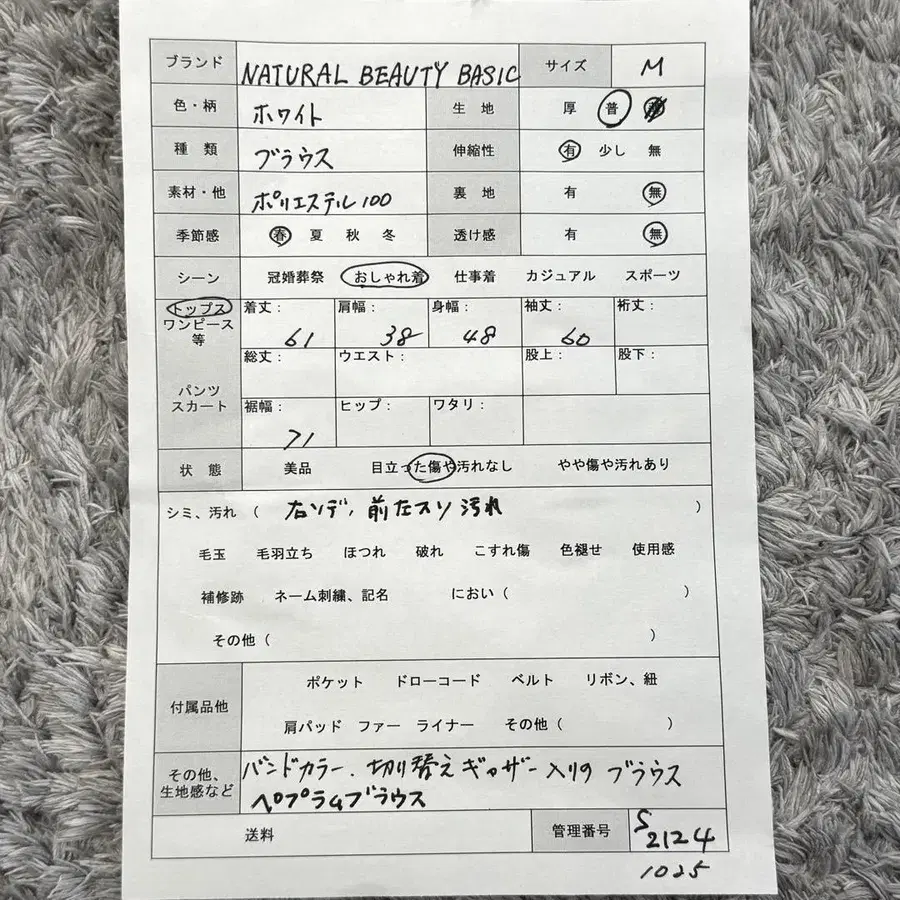 ブランド NATURAL BEAUTY BASIC サイズ M
色・柄 ホワイト 生地 厚 普
種類 ブラウス 伸縮性 有 少し 無
素材・他 ポリエステル100 裏地 有 無
季節感 春 夏 秋 冬 透け感 有 無
シーン 冠婚葬祭 おしゃれ着 仕事着 カジュアル スポーツ
トップス 着丈： 肩幅： 身幅： 袖丈： 裄丈：
ワンピース
等 61 38 48 60
総丈： ウエスト： 股上： 股下：
パンツ
スカート 裾幅： ヒップ： ワタリ：
71
状態 美品 目立った傷や汚れなし やや傷や汚れあり
シミ、汚れ（ 右ソデ、前左スソ汚れ ）
毛玉 毛羽立ち ほつれ 破れ こすれ傷 色褪せ 使用感
補修跡 ネーム刺繍、記名 におい（ ）
その他（ ）
ポケット ドローコード ベルト リボン、紐
付属品他
肩パッド ファー ライナー その他（ ）
その他、 バンドカラー、切り替えギャザー入りの ブラウス
生地感など ペプラムブラウス
送料 管理番号 S
2124
1025